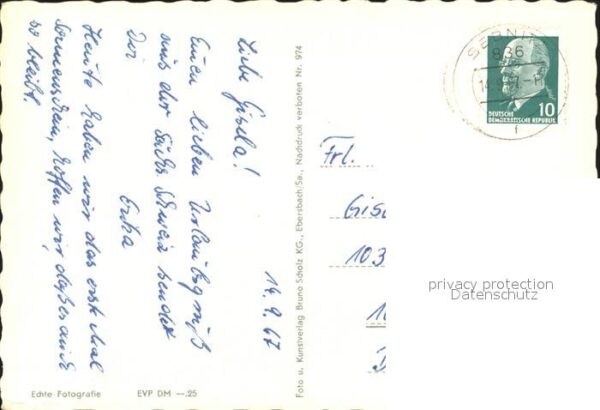 14.9.67
Liebe Gisela!
Einen lieben Urlaubsgruß
aus der Sächs. Schweiz sendet
Dir
Erika
Heute haben wir das erste Mal
Sonnenschein, hoffen wir, daß es auch
so bleibt.
Echte Fotografie EVP DM —.25
Foto u. Kunstverlag Bruno Scholz KG., Ebersbach/Sa., Nachdruck verboten Nr. 974
SEBNI
836
10
DEUTSCHE
DEMOKRATISCHE REPUBLIK
f
Frl.
Gis
103
privacy protection
Datenschutz